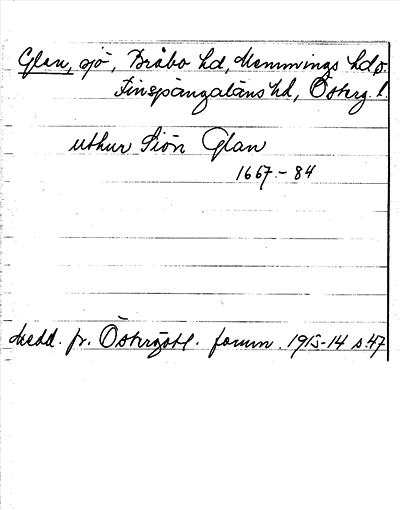 Glan, sjö, Bråbo hd, Memmings hd o.
Finspångaläns hd, Österg. l.
uthur Siön Glan
1667-84
Medd. fr. Östergötl. fornm. 1913-14 s. 47